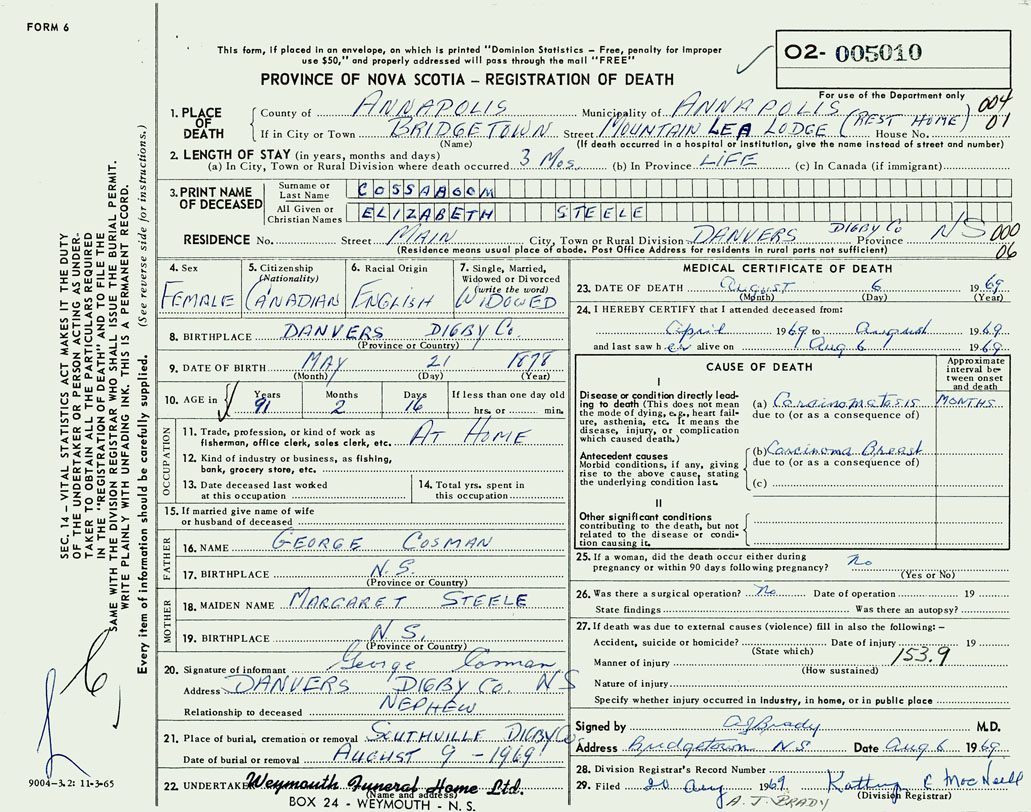 FORM 6
This form, if placed in an envelope, on which is printed "Dominion Statistics – Free, penalty for improper
use $50," and properly addressed will pass through the mail "FREE"
PROVINCE OF NOVA SCOTIA – REGISTRATION OF DEATH
02- 005010
For use of the Department only
004
01
1. PLACE OF DEATH
County of ANNAPOLIS Municipality of ANNAPOLIS
If in City or Town BRIDGETOWN Street MOUNTAIN LEA LODGE (REST HOME) House No.
(Name) (If death occurred in a hospital or institution, give the name instead of street and number)
2. LENGTH OF STAY (in years, months and days)
(a) In City, Town or Rural Division where death occurred 3 Mos. (b) In Province LIFE (c) In Canada (if immigrant)
3. PRINT NAME OF DECEASED
Surname or Last Name COSSABOOM
All Given or Christian Names ELIZABETH STEELE
RESIDENCE No. Street MAIN City, Town or Rural Division DANVERS DIGBY CO Province NS
000
06
(Residence means usual place of abode. Post Office Address for residents in rural parts not sufficient)
4. Sex FEMALE
5. Citizenship (Nationality) CANADIAN
6. Racial Origin ENGLISH
7. Single, Married, Widowed or Divorced (write the word) WIDOWED
8. BIRTHPLACE DANVERS DIGBY Co.
(Province or Country)
9. DATE OF BIRTH MAY 21 1878
(Month) (Day) (Year)
10. AGE in Years 91 Months 2 Days 16 If less than one day old
hrs. or min.
OCCUPATION
11. Trade, profession, or kind of work as
fisherman, office clerk, sales clerk, etc. AT HOME
12. Kind of industry or business, as fishing,
bank, grocery store, etc.
13. Date deceased last worked
at this occupation
14. Total yrs. spent in
this occupation
15. If married give name of wife
or husband of deceased
FATHER
16. NAME GEORGE COSMAN
17. BIRTHPLACE N.S.
(Province or Country)
MOTHER
18. MAIDEN NAME MARGARET STEELE
19. BIRTHPLACE N.S.
(Province or Country)
20. Signature of informant George Cosman
Address DANVERS DIGBY Co. NS
Relationship to deceased NEPHEW
21. Place of burial, cremation or removal SOUTHVILLE DIGBY Co
Date of burial or removal AUGUST 9 - 1969
22. UNDERTAKER Weymouth Funeral Home Ltd.
(Name and address)
BOX 24 - WEYMOUTH - N. S.
MEDICAL CERTIFICATE OF DEATH
23. DATE OF DEATH August 6 1969
(Month) (Day) (Year)
24. I HEREBY CERTIFY that I attended deceased from:
April 1969 to August 1969
and last saw her alive on Aug 6 1969
CAUSE OF DEATH
Approximate interval between onset and death
I
Disease or condition directly leading to death (This does not mean
the mode of dying, e.g., heart failure, asthenia, etc. It means the
disease, injury, or complication
which caused death.)
(a) Carcinomatosis MONTHS
due to (or as a consequence of)
Antecedent causes
Morbid conditions, if any, giving
rise to the above cause, stating
the underlying condition last.
(b) Carcinoma Breast
due to (or as a consequence of)
(c)
II
Other significant conditions
contributing to the death, but not
related to the disease or condition causing it.
25. If a woman, did the death occur either during
pregnancy or within 90 days following pregnancy? no
(Yes or No)
26. Was there a surgical operation? no Date of operation 19
State findings Was there an autopsy?
27. If death was due to external causes (violence) fill in also the following: –
Accident, suicide or homicide? Date of injury 19
(State which)
153.9
Manner of injury
(How sustained)
Nature of injury
Specify whether injury occurred in industry, in home, or in public place
Signed by AJBrady M.D.
Address Bridgetown N.S Date Aug 6 1969
28. Division Registrar's Record Number
29. Filed 20 Aug 1969 E MacNeill
(Division Registrar)
A. J. BRADY
SEC. 14 – VITAL STATISTICS ACT MAKES IT THE DUTY
OF THE UNDERTAKER OR PERSON ACTING AS UNDER-
TAKER TO OBTAIN ALL THE PARTICULARS REQUIRED
IN THE "REGISTRATION OF DEATH" AND TO FILE THE
SAME WITH THE DIVISION REGISTRAR WHO SHALL ISSUE THE BURIAL PERMIT.
WRITE PLAINLY WITH UNFADING INK. THIS IS A PERMANENT RECORD.
Every item of information should be carefully supplied. (See reverse side for instructions.)
9004-3.2: 11-3-65